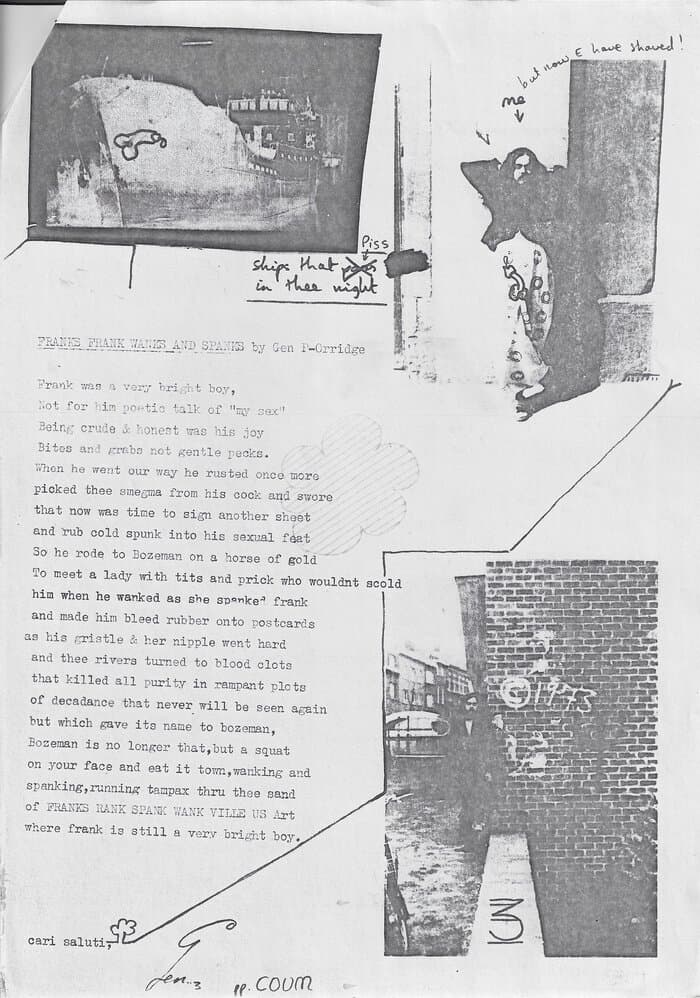 but now E have shaved!
me
Piss
ships that pass
in thee night
FRANKS FRANK WANKS AND SPANKS by Gen P-Orridge
Frank was a very bright boy,
Not for him poetic talk of "my sex"
Being crude & honest was his joy
Bites and grabs not gentle pecks.
When he went our way he rusted once more
picked thee smegma from his cock and swore
that now was time to sign another sheet
and rub cold spunk into his sexual feat
So he rode to Bozeman on a horse of gold
To meet a lady with tits and prick who wouldnt scold
him when he wanked as she spanked frank
and made him bleed rubber onto postcards
as his gristle & her nipple went hard
and thee rivers turned to blood clots
that killed all purity in rampant plots
of decadance that never will be seen again
but which gave its name to bozeman,
Bozeman is no longer that,but a squat
on your face and eat it town,wanking and
spanking,running tampax thru thee sand
of FRANKS RANK SPANK WANK VILLE US Art
where frank is still a very bright boy.
©1973
cari saluti,
Gen..
pp. COUM